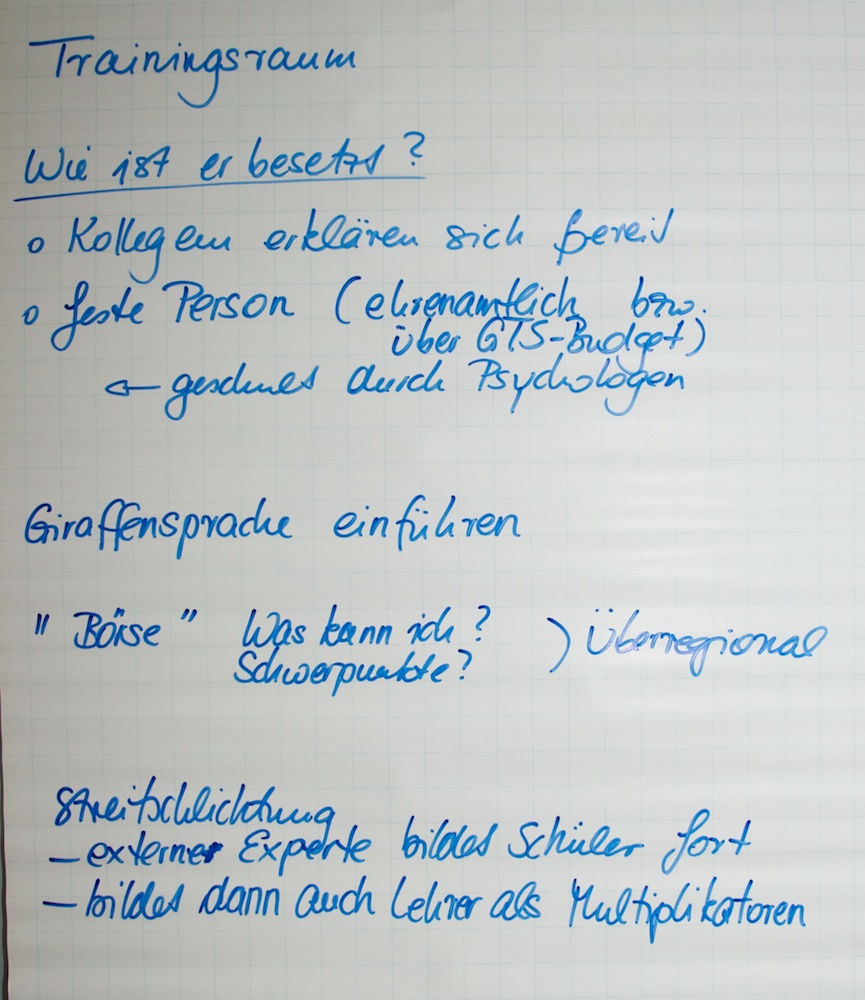 Trainingsraum
Wie ist er besetzt?
o Kollegem erklären sich bereit
o feste Person (ehrenamtlich bzw.
über GTS-Budget)
← geschult durch Psychologen
Giraffensprache einführen
"Börse" Was kann ich? ) Überregional
Schwerpunkte?
Streitschlichtung
– externer Experte bildet Schüler fort
– bildet dann auch Lehrer als Multiplikatoren